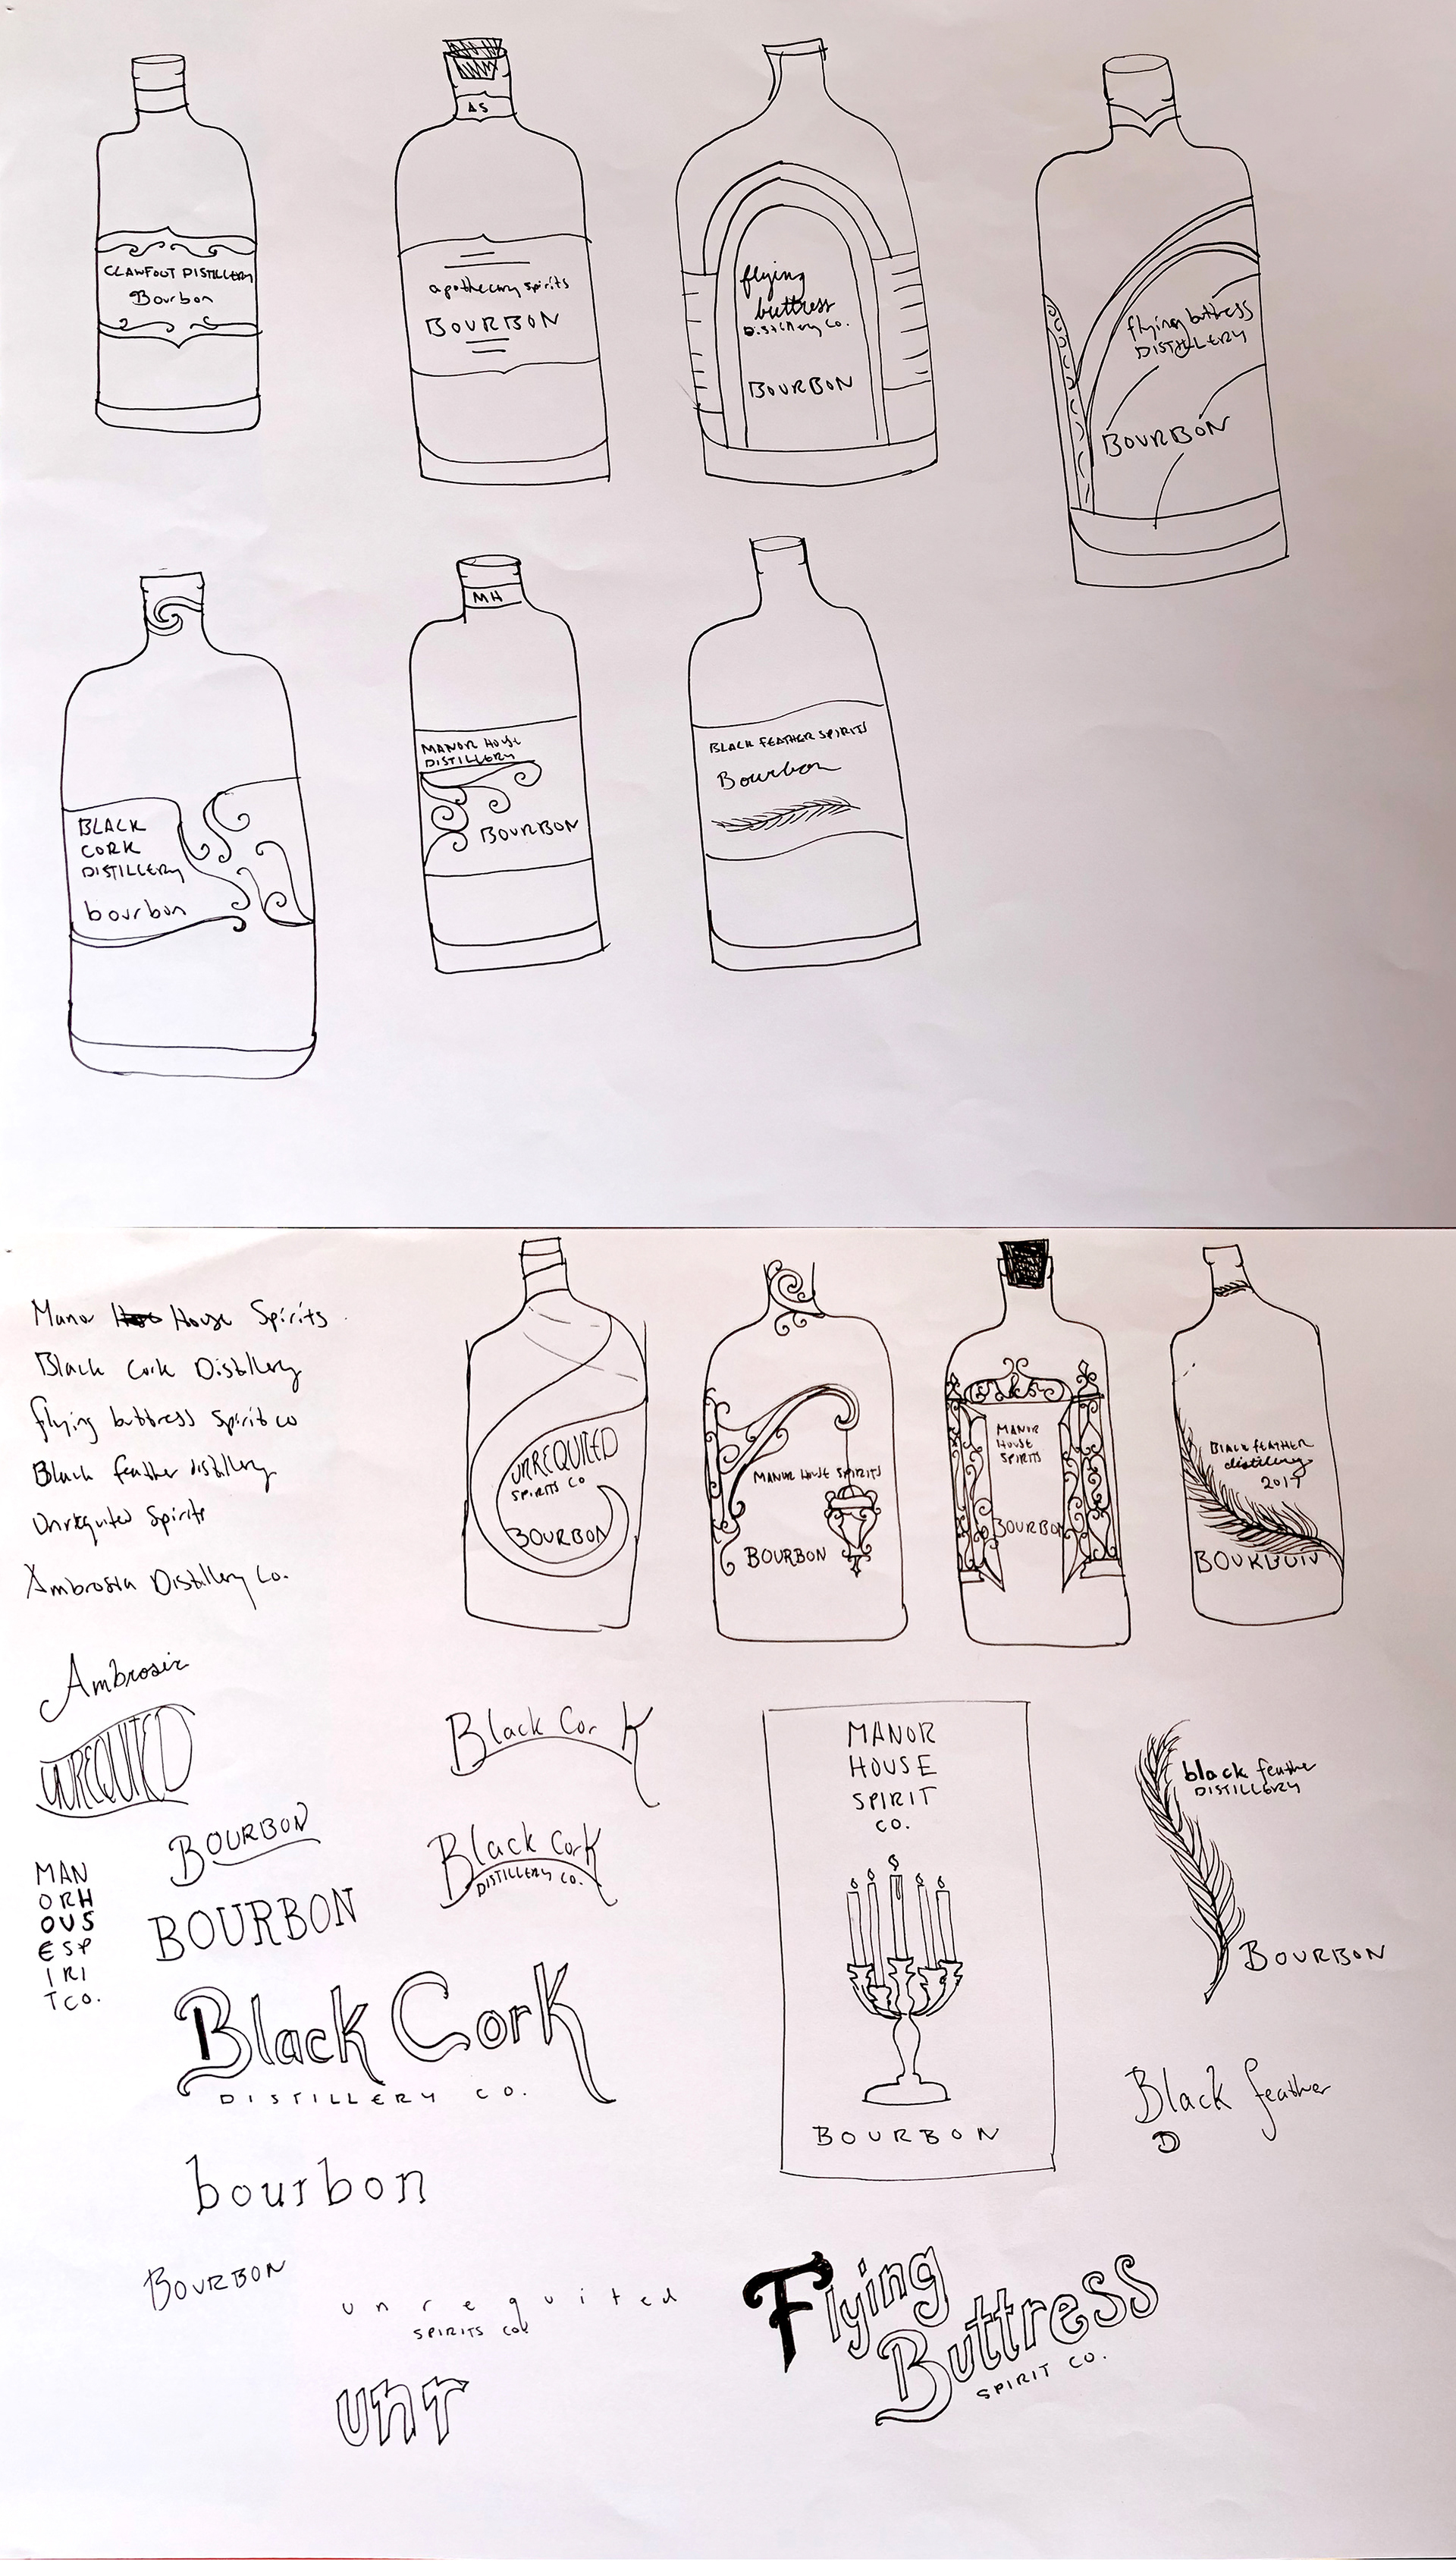 CLAWFOOT DISTILLERY
Bourbon
AS
apothecary spirits
BOURBON
flying
buttress
Distillery Co.
BOURBON
flying buttress
DISTILLERY
BOURBON
BLACK
CORK
DISTILLERY
bourbon
MH
MANOR HOUSE
DISTILLERY
BOURBON
BLACK FEATHER SPIRITS
Bourbon
Manor House Spirits
Black Cork Distillery
flying buttress Spirit co
Black feather distillery
Unrequited Spirits
Ambrosia Distillery Co.
UNREQUITED
SPIRITS CO
BOURBON
MANOR HOUSE SPIRITS
BOURBON
MANOR
HOUSE
SPIRITS
BOURBON
BLACK FEATHER
distillery
2017
BOURBON
Ambrosia
UNREQUITED
BOURBON
MAN
ORH
OUS
ESP
IRI
TCO.
BOURBON
Black Cork
Black Cork
DISTILLERY CO.
Black Cork
DISTILLERY CO.
bourbon
BOURBON
unrequited
SPIRITS
unr
MANOR
HOUSE
SPIRIT
CO.
BOURBON
black feather
DISTILLERY
BOURBON
Black feather
D
Flying
Buttress
SPIRIT CO.